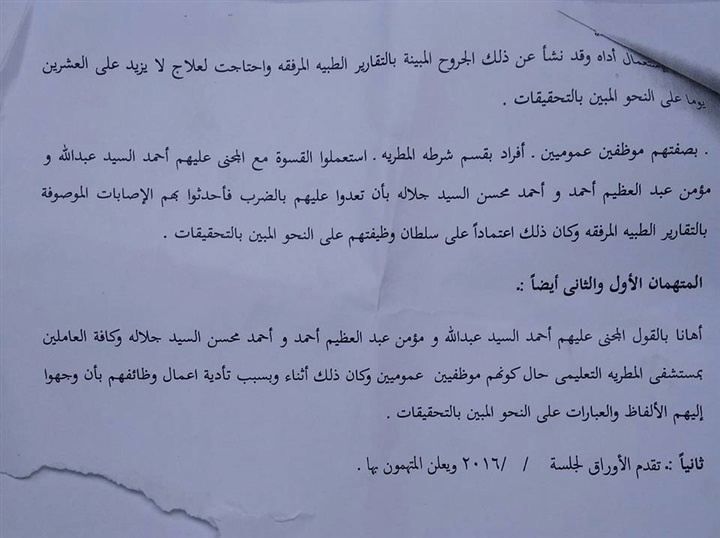 أداه وقد نشأ عن ذلك الجروح المبينة بالتقارير الطبيه المرفقه واحتاجت لعلاج لا يزيد على العشرين
يوما على النحو المبين بالتحقيقات .
. بصفتهم موظفين عموميين . أفراد بقسم شرطه المطريه . استعملوا القسوة مع المجنى عليهم أحمد السيد عبدالله و
مؤمن عبد العظيم أحمد و أحمد محسن السيد جلاله بأن تعدوا عليهم بالضرب فأحدثوا بهم الإصابات الموصوفة
بالتقارير الطبيه المرفقه وكان ذلك اعتماداً على سلطان وظيفتهم على النحو المبين بالتحقيقات .
المتهمان الأول والثانى أيضاً :.
أهانا بالقول المجنى عليهم أحمد السيد عبدالله و مؤمن عبد العظيم أحمد و أحمد محسن السيد جلاله وكافة العاملين
بمستشفى المطريه التعليمى حال كونهم موظفيين عموميين وكان ذلك أثناء وبسبب تأدية اعمال وظائفهم بأن وجهوا
إليهم الألفاظ والعبارات على النحو المبين بالتحقيقات .
ثانياً :. تقدم الأوراق لجلسة / /٢٠١٦ ويعلن المتهمون بها .